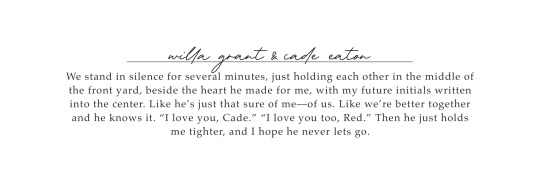 willa grant & cade eaton
We stand in silence for several minutes, just holding each other in the middle of
the front yard, beside the heart he made for me, with my future initials written
into the center. Like he's just that sure of me—of us. Like we're better together
and he knows it. “I love you, Cade.” “I love you too, Red.” Then he just holds
me tighter, and I hope he never lets go.